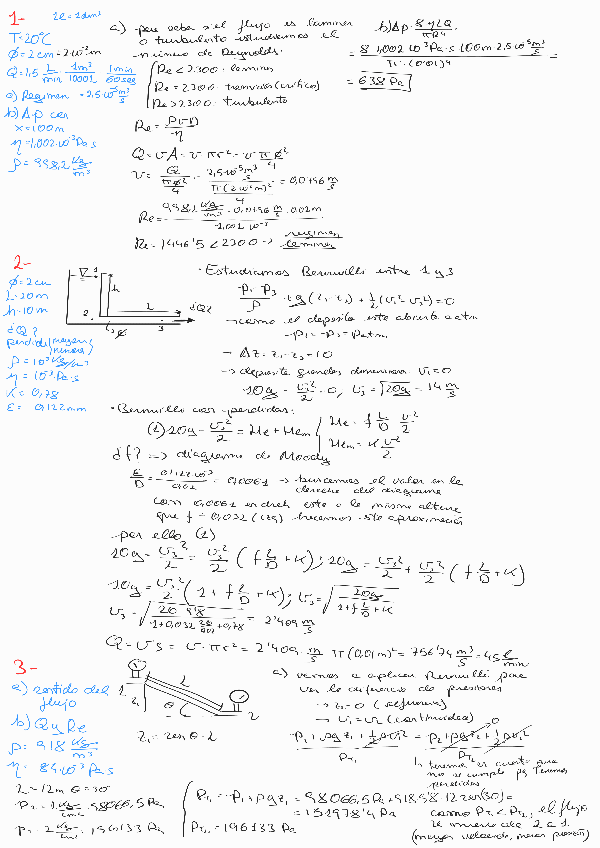 1-
1L = 1dm³
T=20ºC
Ø=2cm=2·10⁻²m
Q=1,5 L/min · 1m³/1000l · 1min/60seg
a) Regimen = 2,5·10⁻⁵ m³/s
b) Δp con
x=100m
η=1,002·10⁻³Pa·s
ρ=998,2 kg/m³
a) para saber si el flujo es laminar
o turbulento estudiaremos el
número de Reynolds.
Re<2300 · laminar
Re=2300 · transición (crítico)
Re>2300 · turbulento
Re = ρvD/η
Q=vA=v πr²=v πØ²/4
v = Q/(πØ²/4) = 2,5·10⁻⁵ m³/s / (π(2·10⁻²m)²/4) = 0,0796 m/s
Re = 998,2 kg/m³ · 0,0796 m/s · 0,02m / 1,002·10⁻³
Re=1446'5 < 2300 → regimen laminar
b) Δp = 8ηLQ/πR⁴
= 8·1,002·10⁻³Pa·s·100m·2,5·10⁻⁵ m³/s / π·(0'01)⁴ =
= 638 Pa
2-
Ø=2cm
L=20m
h=10m
¿Q?
ρ=10³ kg/m³
η=10⁻³Pa·s
K=0,78
ε=0,122mm
1
h
L
¿Q?
2
Ø
3
· Estudiamos Bernoulli entre 1 y 3
(p₁-p₃)/ρ + g(z₁-z₃) + ½(v₁²-v₃²)=0
→ como el deposito esta abierto a atm
→ p₁=p₃=patm
→ Δz=z₁-z₃=10
→ deposito grandes dimensiones v₁=0
10g - v₃²/2 = 0, v₃=√20g = 14 m/s
· Bernoulli con perdidas:
10g - v₃²/2 = Hc + Hcm
Hc = f L/D v²/2
Hcm = K v²/2
¿f? → diagrama de Moody
ε/D = 0,122·10⁻³/0,02 = 0,0061 → buscamos el valor en la
derecha del diagrama
que f=0,032 hacemos este aproximación
por ello
10g - v₃²/2 = v₃²/2 (f L/D + K); 10g = v₃²/2 + v₃²/2 (f L/D + K)
10g = v₃²/2 (1 + f L/D + K); v₃=√(20g/(1+f L/D+K))
= 2'409 m/s
Q=vS = v·πr² = 2'409 m/s π(0,01m)² = 7'5674 m³/s = 45 l/min
3-
a) sentido del
flujo
b) Q y Re
ρ=918 kg/m³
L=12m θ=30
1
z₁
L
θ
2
z₁=senθ·L
a) vamos a aplicar Bernoulli para
ver la diferencia de presiones
→ z₂=0 (referencia)
→ v₁=v₂ (continuidad)
p₁+ρgz₁+½ρv₁² = p₂+ρgz₂+½ρv₂²
PT₁
PT₂
no se cumple pq tenemos
perdidas
PT₁ = p₁+ρgz₁ = 98066,5Pa+918·9'8·12sen(30)=
= 151978'4 Pa
PT₂ = 196133 Pa
como PT₁<PT₂, el flujo
se mueve de 2 a 1.